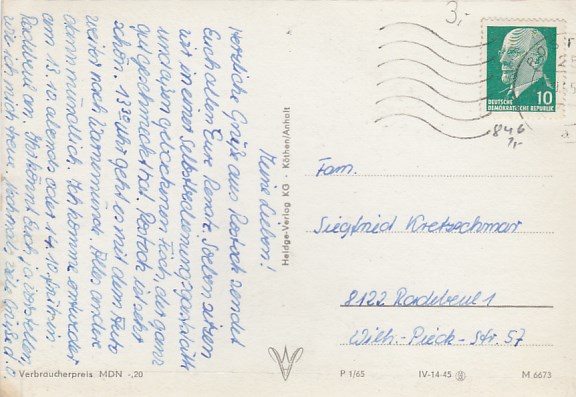 3,-
DEUTSCHE
DEMOKRATISCHE REPUBLIK
10
846
1,-
Meine Lieben!
Herzliche Grüße aus Rostock sendet
Euch allen Eure Renate. Soeben aßen
wir in einer Selbstbedienungsgaststätte
und gedockenen Fisch, der ganz
gut geschmeckt hat. Rostock ist sehr
schön. 13°° Uhr geht es mit dem Auto
weiter nach Warnemünde. Alles andere
dann mündlich. Ich komme entweder
am 13.10. abends oder 14.10. früh in
Radebeul an. Ihr könnt Euch ja vorstellen,
wie ich mich freu. Nochmals viele Grüße d. O.
Heldge-Verlag KG - Köthen/Anhalt
Fam.
Siegfried Kretzschmar
8122 Radebeul 1
Wilh.-Pieck-Str. 57
Verbraucherpreis MDN -,20
P 1/65
IV-14-45
M 6673